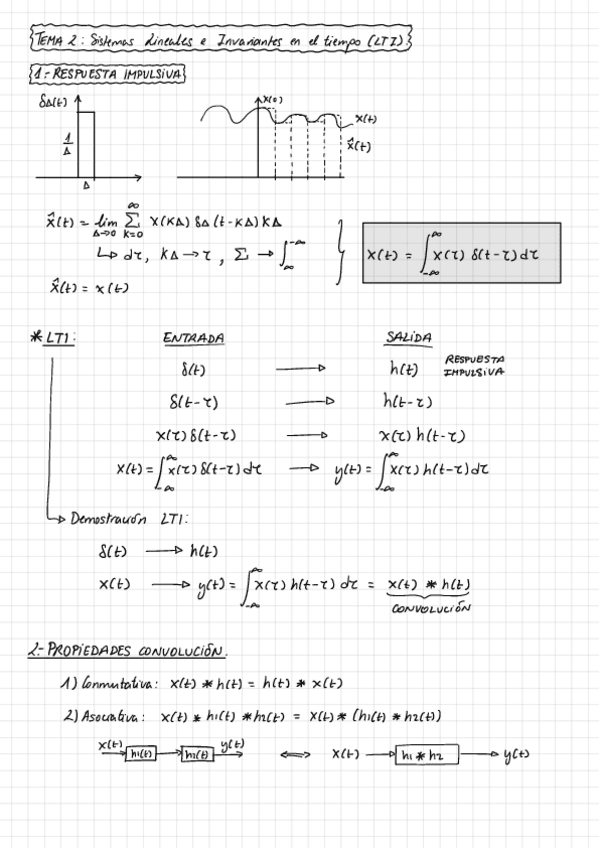 TEMA 2: Sistemas Lineales e Invariantes en el tiempo (LTI)
1.- RESPUESTA IMPULSIVA
δΔ(t)
1/Δ
Δ
x(0)
x(t)
x̂(t)
x̂(t) = lim Δ→0 ∑ k=0 ∞ x(kΔ) δΔ(t-kΔ) kΔ
↳ dτ, kΔ → τ, ∑ → ∫ ∞ -∞
x̂(t) = x(t)
x(t) = ∫ -∞ ∞ x(τ) δ(t-τ) dτ
* LTI: ENTRADA SALIDA
δ(t) → h(t) RESPUESTA IMPULSIVA
δ(t-τ) → h(t-τ)
x(τ) δ(t-τ) → x(τ) h(t-τ)
x(t) = ∫ -∞ ∞ x(τ) δ(t-τ) dτ → y(t) = ∫ -∞ ∞ x(τ) h(t-τ) dτ
↳ Demostración LTI:
δ(t) → h(t)
x(t) → y(t) = ∫ -∞ ∞ x(τ) h(t-τ) dτ = x(t) * h(t)
CONVOLUCIÓN
2.- PROPIEDADES CONVOLUCIÓN.
1) Conmutativa: x(t) * h(t) = h(t) * x(t)
2) Asociativa: x(t) * h1(t) * h2(t) = x(t) * (h1(t) * h2(t))
x(t) → h1(t) → h2(t) → y(t) ⟺ x(t) → h1 * h2 → y(t)